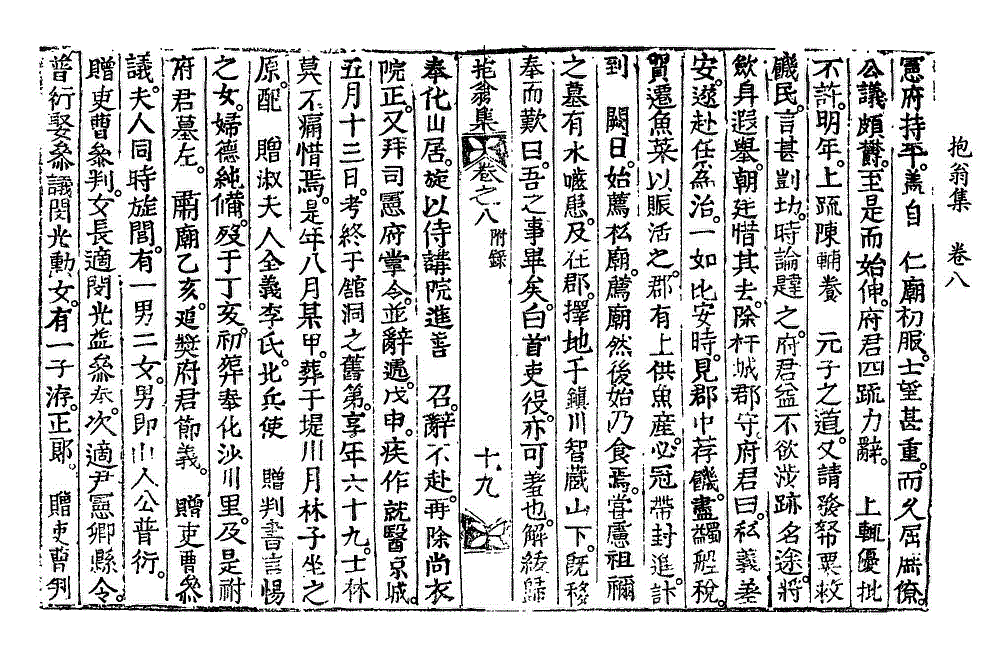 抱翁集 卷八
憲府持平。盖自 仁廟初服。士望甚重。而久屈庶僚。
公議頗欝。至是而始伸。府君四疏力辭。 上輒優批
不許。明年。上疏陳輔養 元子之道。又請發帑粟救
饑民。言甚剴切。時論韙之。府君益不欲涉跡名途。將
飲身遐擧。朝廷惜其去。除杆城郡守。府君曰。私義差
安。遂赴任。爲治。一如比安時。見郡中荐饑。盡蠲船稅。
貿遷魚菜。以賑活之。郡有上供魚産。必冠帶封進。計
到 闕日。始薦私廟。薦廟然後始乃食焉。嘗慮祖禰
之墓有水嚙患。及在郡。擇地于鎭川智藏山下。旣移
奉而歎曰。吾之事畢矣。白首吏役。亦可羞也。解紱歸
抱翁集 卷之八 附錄 十九
奉化山居。旋以侍講院進善 召。辭不赴。再除尚衣
院正。又拜司憲府掌令。並辭遞。戊申。疾作就醫京城。
五月十三日。考終于館洞之舊第。享年六十九。士林
莫不痛惜焉。是年八月某甲。葬于堤川月林子坐之
原。配 贈淑夫人全義李氏。北兵使 贈判書言惕
之女。婦德純備。歿于丁亥。初葬奉化沙川里。及是祔
府君墓左。 肅廟乙亥。追奬府君節義。 贈吏曹叅
議。夫人同時旌閭。有一男二女。男卽山人公普衍。
贈吏曹叅判。女長適閔光益叅奉。次適尹憲卿縣令。
普衍娶叅議閔光勳女。有一子洊。正郞。 贈吏曹判